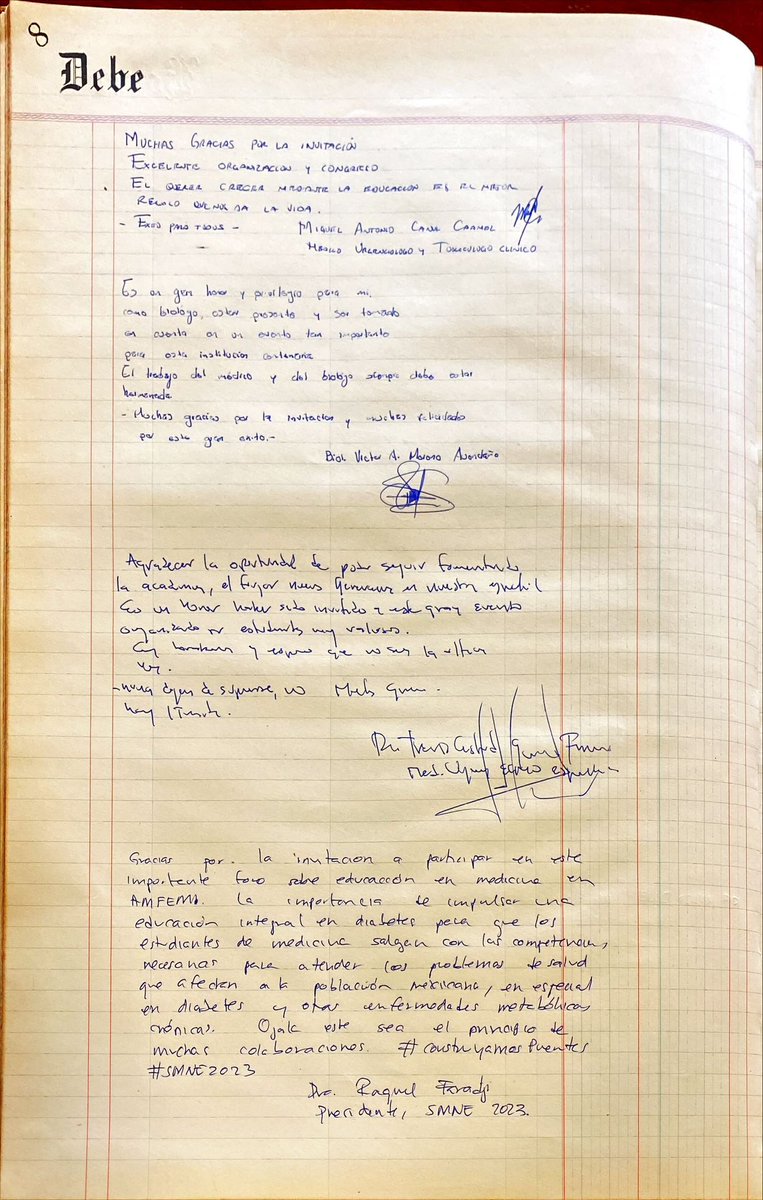 8
Debe
MUCHAS GRACIAS POR LA INVITACIÓN
EXCELENTE ORGANIZACION Y CONGRESO
EL QUERER CRECER MEDIANTE LA EDUCACION ES EL MEJOR
REGALO QUE NOS DA LA VIDA.
- EXITO PARA TODOS - MIGUEL ANTONIO CANUL
MEDICO URGENCIOLOGO Y TOXICOLOGO CLINICO
Es un gran honor y privilegio para mi,
como biologo, estar presente y ser tomado
en cuenta en un evento tan importante
para esta institución centenaria
El trabajo del médico y del biologo siempre debe estar
hermanado
- Muchas gracias por la invitacion y muchas felicidades
por este gran exito.-
Biol. Victor A. Moreno Avendaño
Agradecer la oportunidad de poder seguir fomentando
la academia, el forjar nuevas en nuestra
Es un honor haber sido invitado a este gran evento
organizado por estudiantes muy valiosos.
y espero que no sea la ultima
vez.
- nunca dejen de superarse, no
hay limite.
Dr.
Med.
Gracias por la invitacion a participar en este
importante foro sobre educacción en medicina en
AMFEM. La importancia de impulsar una
educación integral en diabetes para que los
estudiantes de medicina salgan con las competencias,
necesarias para atender los problemas de salud
que afectan a la población mexicana, en especial
en diabetes y otras enfermedades metabólicas
crónicas. Ojala este sea el principio de
muchas colaboraciones. #ConstruyamosPuentes
#SMNE2023
Dra. Raquel Faradji
Presidente, SMNE 2023.